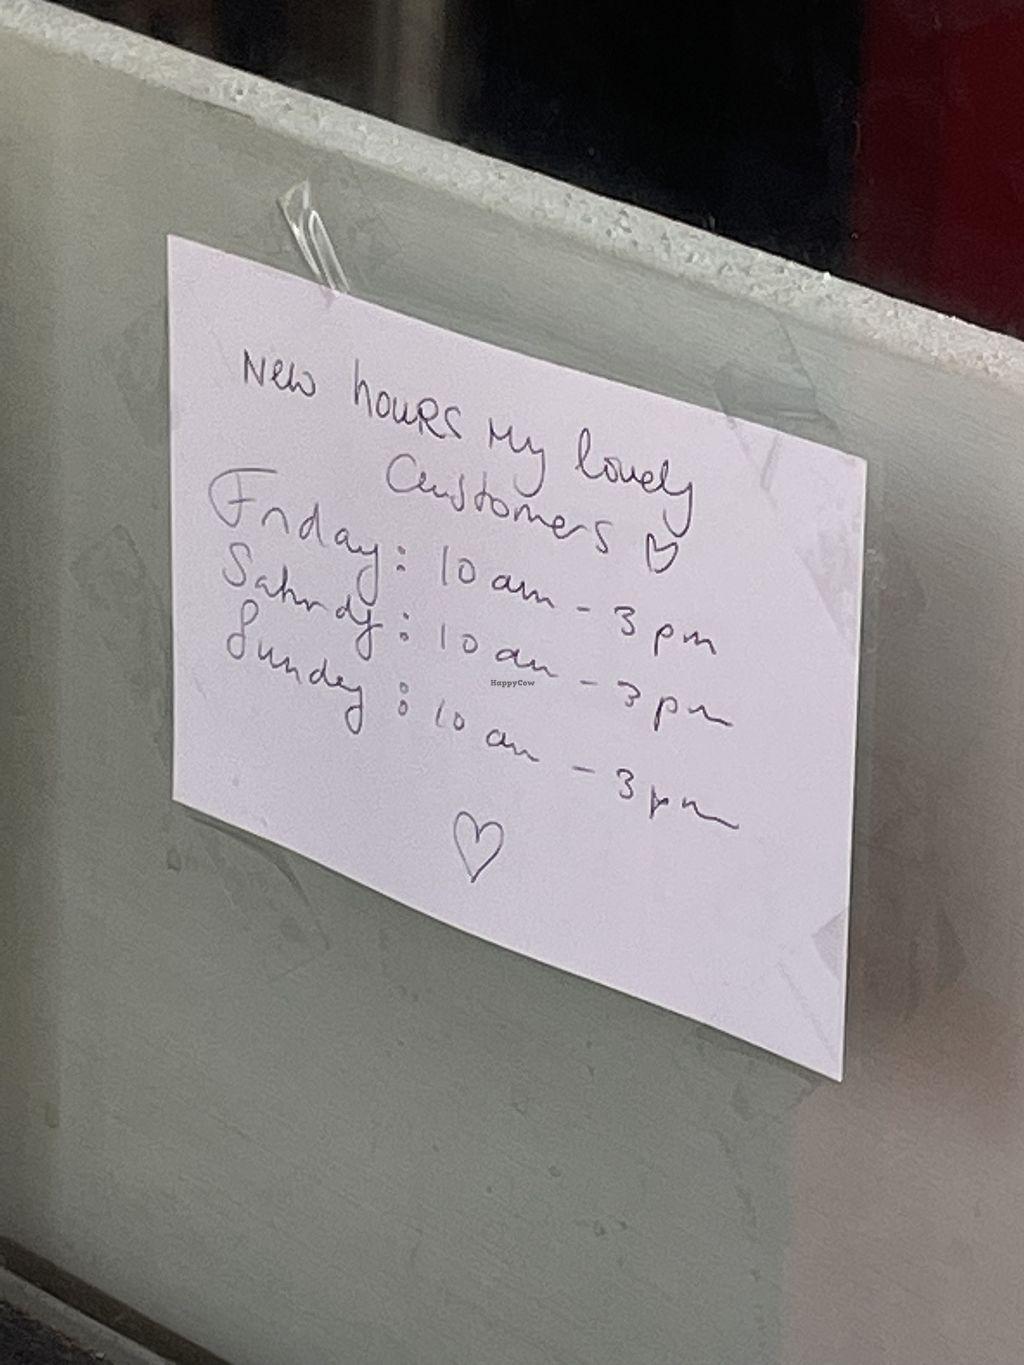 New hours My lovely
Customers ♡
Friday: 10 am - 3 pm
Saturdy: 10 am - 3 pm
Sunday: 10 am - 3 pm
♡
HappyCow